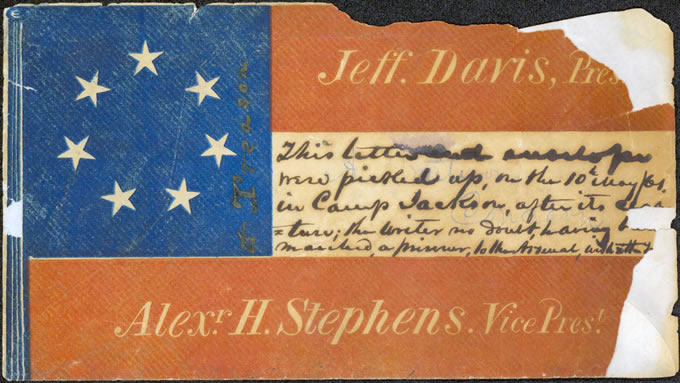 Jeff. Davis, Pres
Treason
This letter and envelope
were picked up, on the 10th May/61,
in Camp Jackson, after its
=ture; the writer no doubt, having
marched, a prisoner, to the Arsenal, with
Alexr. H. Stephens. Vice Prest.